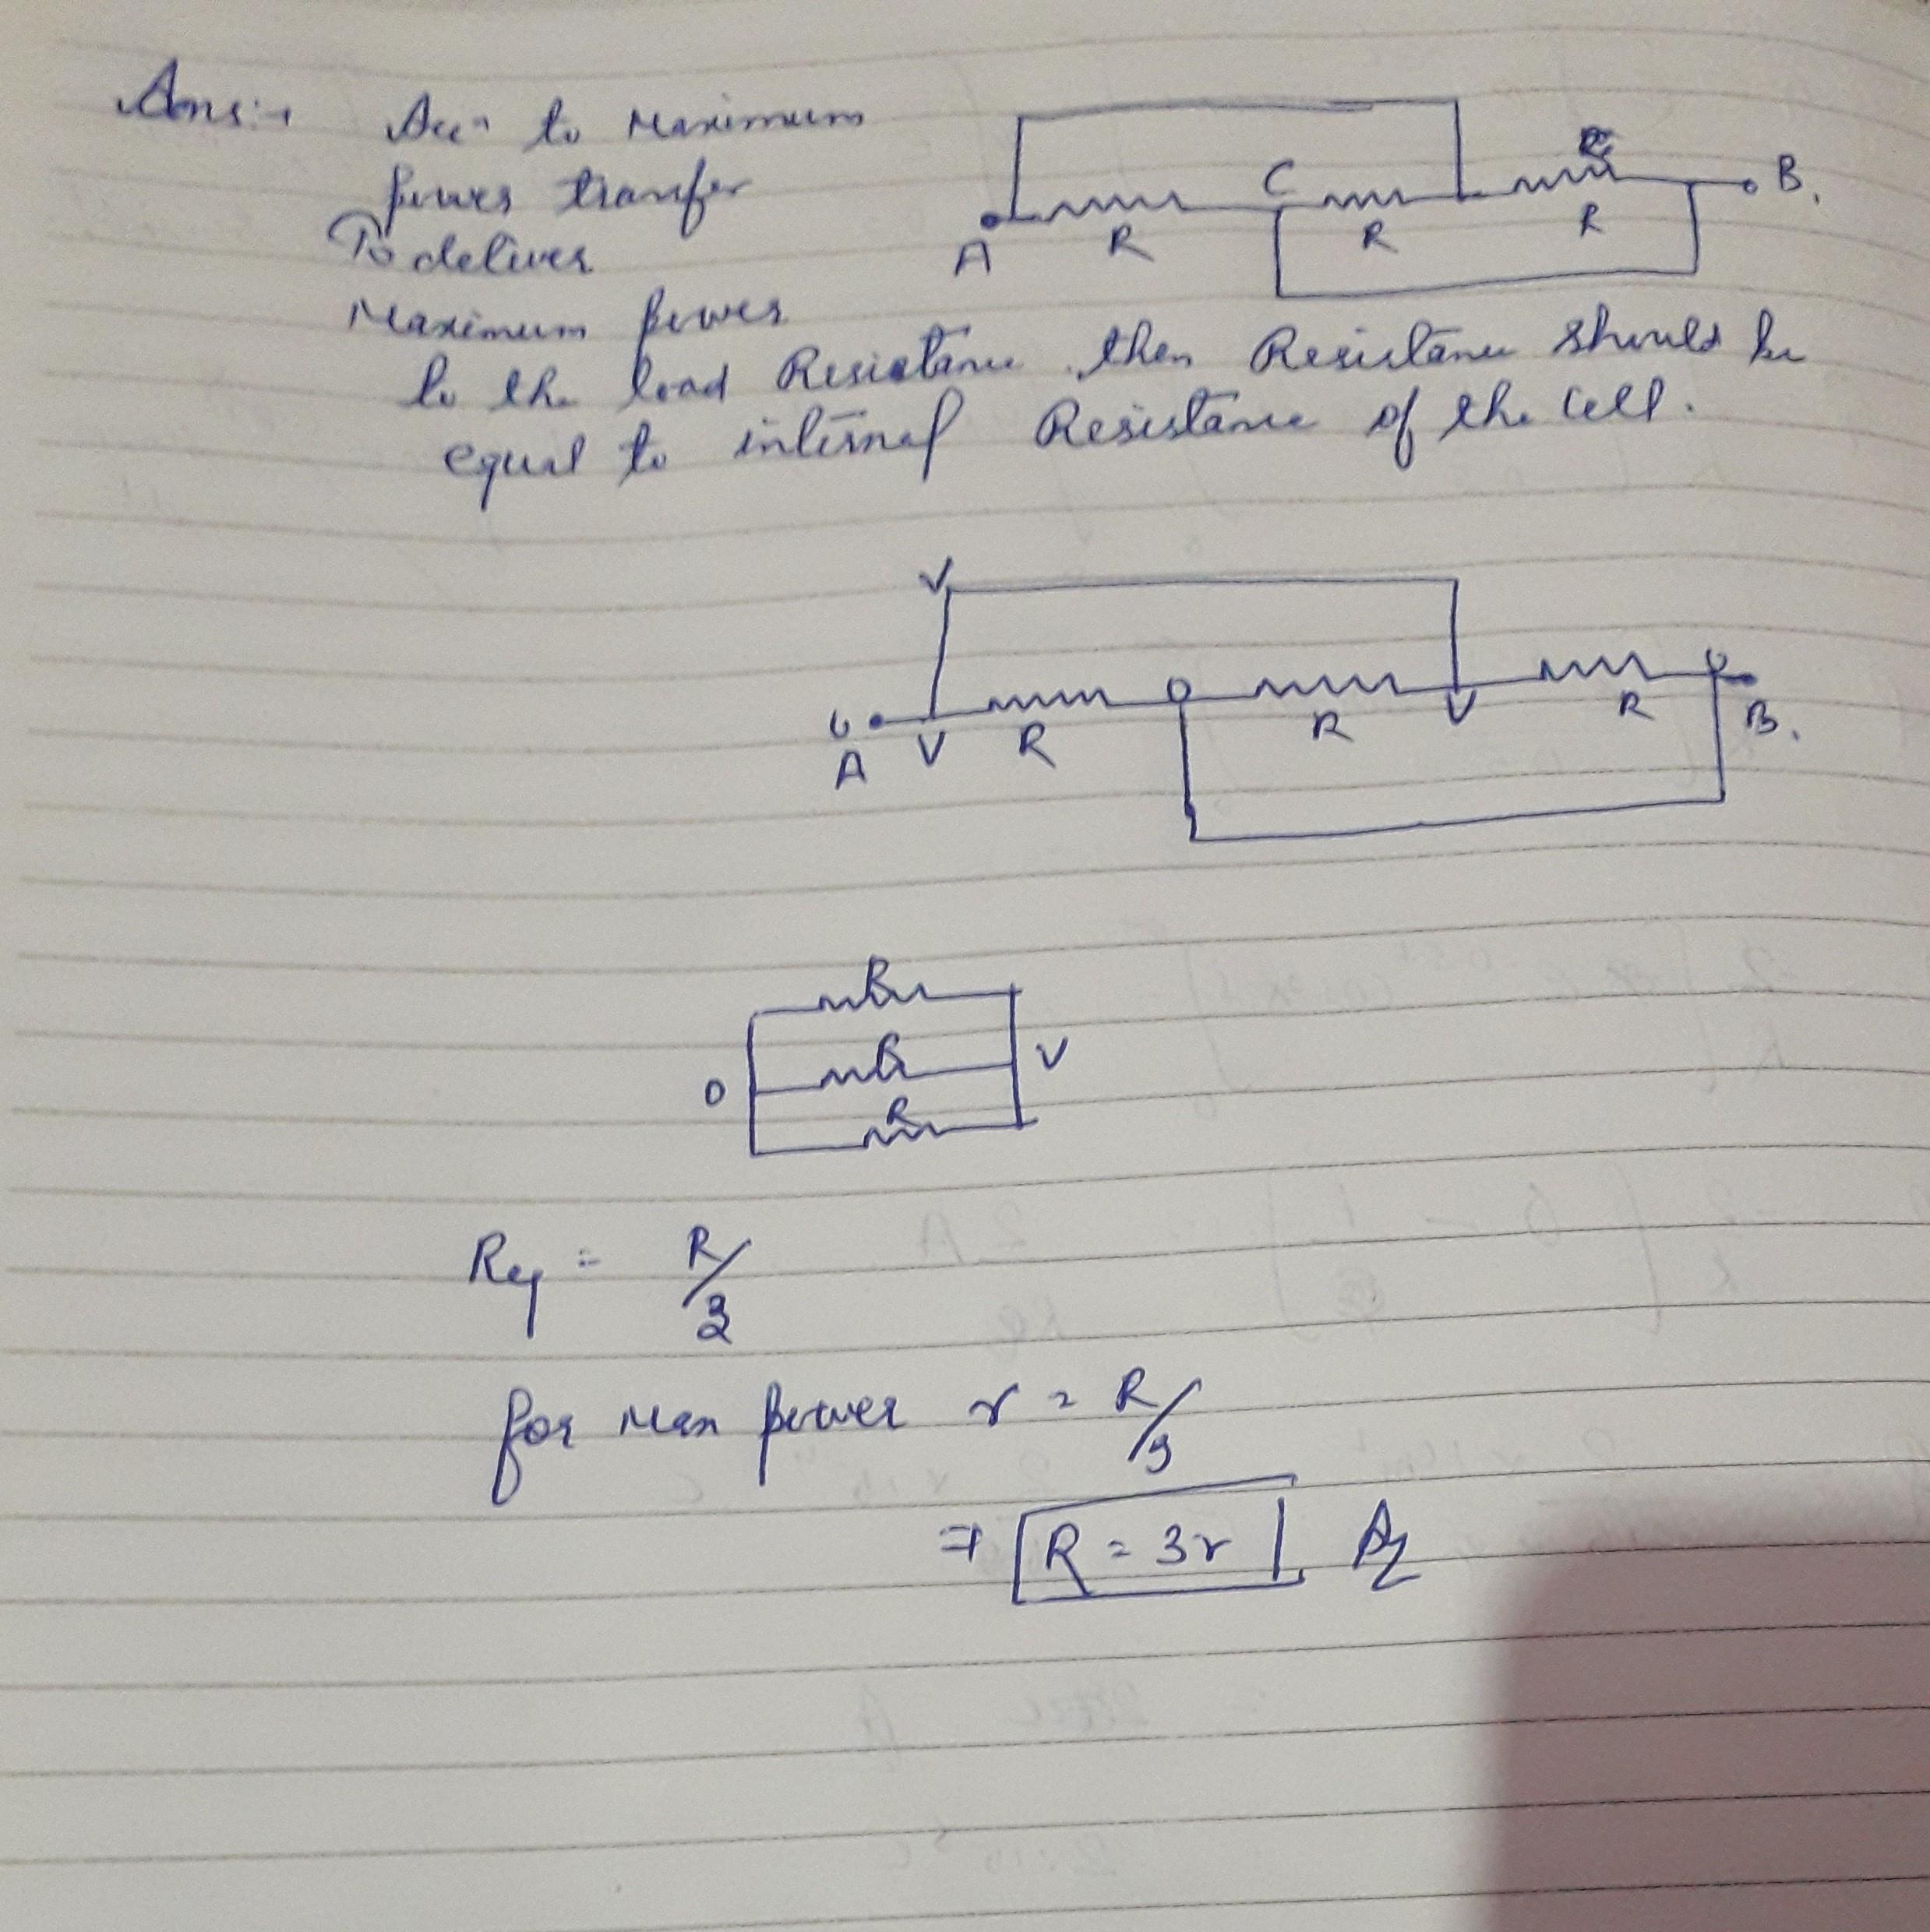 Ans:→ Accn to Maximum
power transfer
To deliver
Maximum power
to the load Resistance then Resistance should be
equal to internal Resistance of the Cell.
A R C R R B.
V
A V R 0 R V R 0 B.
R
0 R V
R
Req = R/3
for Max power r = R/3
⇒ R = 3r